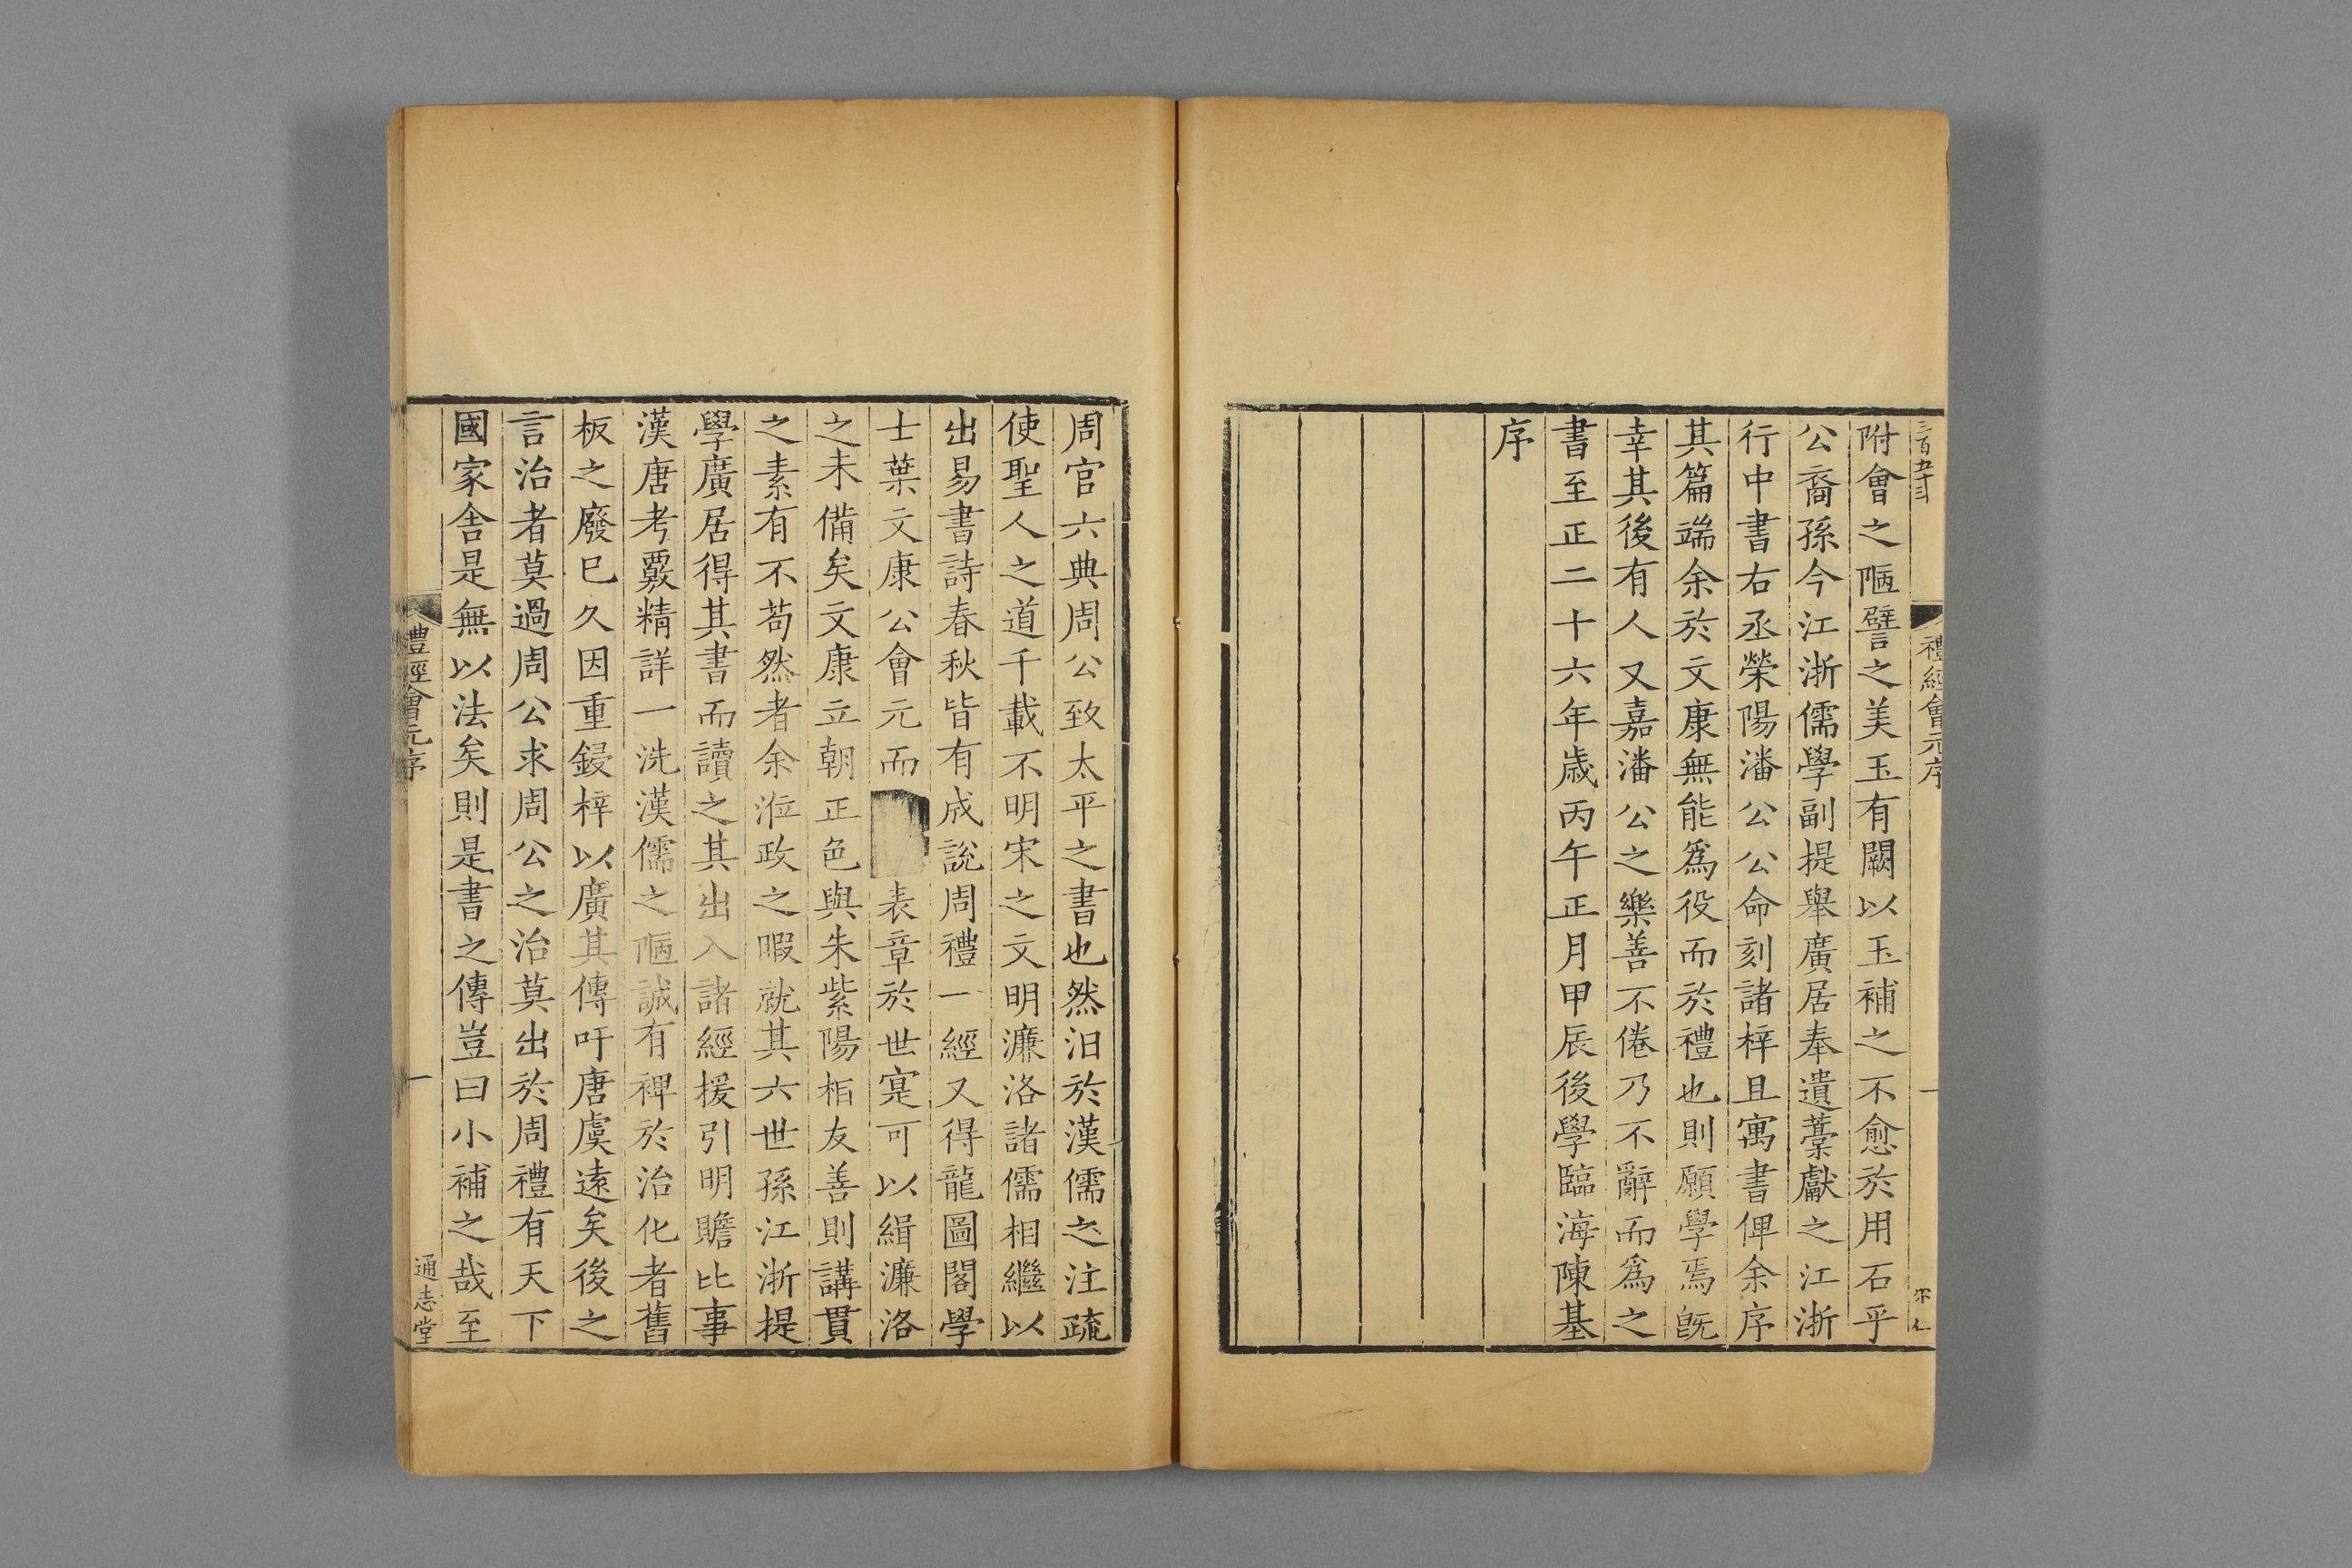 三百五十三
禮經會元序
一
附會之陋譬之美玉有闕以玉補之不愈於用石乎
公裔孫今江浙儒學副提舉廣居奉遺藁獻之江浙
行中書右丞榮陽潘公公命刻諸梓且寓書俾余序
其篇端余於文康無能爲役而於禮也則願學焉旣
幸其後有人又嘉潘公之樂善不倦乃不辭而爲之
書至正二十六年歲丙午正月甲辰後學臨海陳基
序
周官六典周公致太平之書也然汨於漢儒之注疏
使聖人之道千載不明宋之文明濂洛諸儒相繼以
出易書詩春秋皆有成說周禮一經又得龍圖閣學
士葉文康公會元而表章於世寔可以緝濂洛
之未備矣文康立朝正色與朱紫陽相友善則講貫
之素有不苟然者余涖政之暇就其六世孫江浙提
學廣居得其書而讀之其出入諸經援引明贍比事
漢唐考覈精詳一洗漢儒之陋誠有裨於治化者舊
板之廢巳久因重鋟梓以廣其傳吁唐虞遠矣後之
言治者莫過周公求周公之治莫出於周禮有天下
國家舍是無以法矣則是書之傳豈曰小補之哉至
禮經會元序
一
通志堂